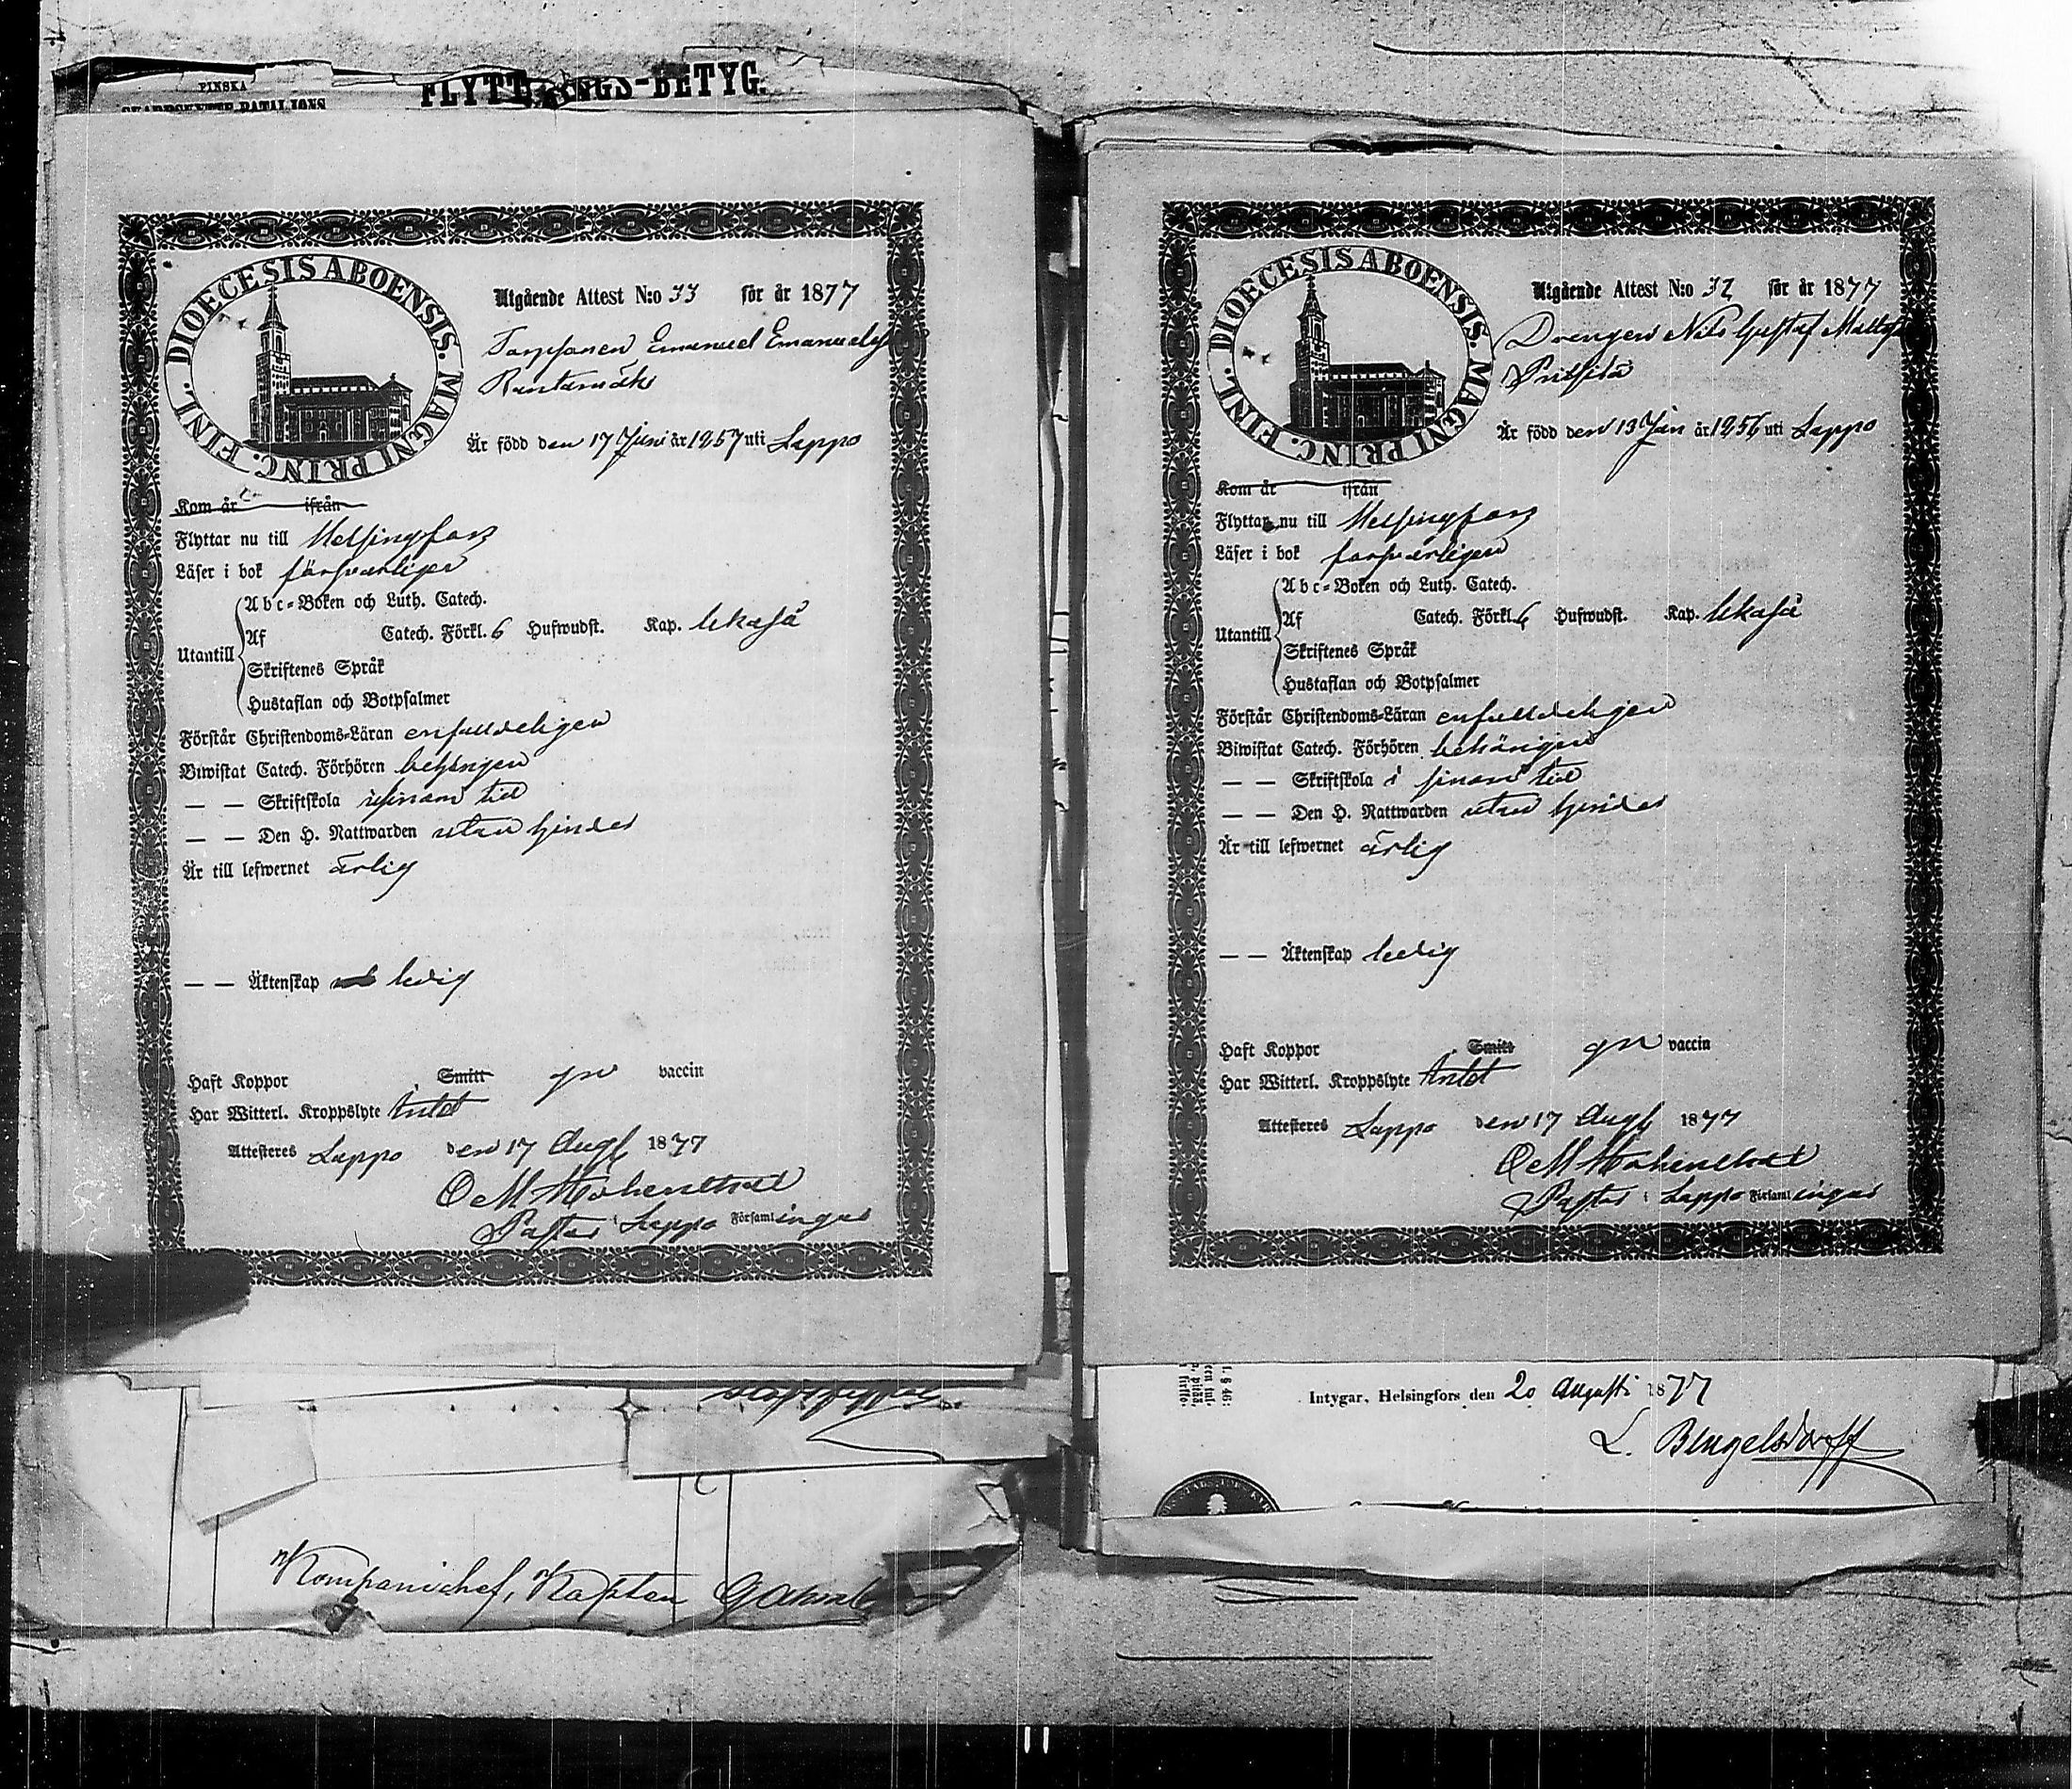 FINSKA
SKARPSKYTTE-BATALJONS
FLYTTNINGS-BETYG.
DIOECESIS ABOENSIS. MAGNI PRINC. FINL.
Utgående Attest N:o 33 för år 1877
Torpsonen Emanuel Emanuels
Rantamäki
Är född den 17 Juni år 1857 uti Lappo
Kom år ifrån
Flyttar nu till Helsingfors
Läser i bok försvarligen
Abc-Boken och Luth. Catech.
Af Catech. Förkl. 6 Hufwudst. Kap.
Utantill
Skriftenes Språk
Hustaflan och Botpsalmer
Förstår Christendoms-Läran enfaldeligen
Biwistat Catech. Förhören behörigen
— — Skriftskola i sinom tid
— — Den H. Nattwarden utan hinder
Är till lefwernet ärlig
— — Äktenskap ledig
Haft Koppor Smitt gm vaccin
Har Witterl. Kroppslyte intet
Attesteres Lappo den 17 Aug 1877
Pastor i Lappo Församlingar
Kompanichef, Kapten
DIOECESIS ABOENSIS. MAGNI PRINC. FINL.
Utgående Attest N:o 32 för år 1877
Drengen Nils Gustaf Matts
Är född den 13 Jan år 1856 uti Lappo
Kom år ifrån
Flyttar nu till Helsingfors
Läser i bok försvarligen
Abc-Boken och Luth. Catech.
Af Catech. Förkl. 6 Hufwudst. Kap.
Utantill
Skriftenes Språk
Hustaflan och Botpsalmer
Förstår Christendoms-Läran enfaldeligen
Biwistat Catech. Förhören behörigen
— — Skriftskola i sinom tid
— — Den H. Nattwarden utan hinder
Är till lefwernet ärlig
— — Äktenskap ledig
Haft Koppor Smitt gm vaccin
Har Witterl. Kroppslyte intet
Attesteres Lappo den 17 Aug 1877
Pastor i Lappo Församlingar
Intygar, Helsingfors den 20 Augusti 1877
L. Bengelsdorff